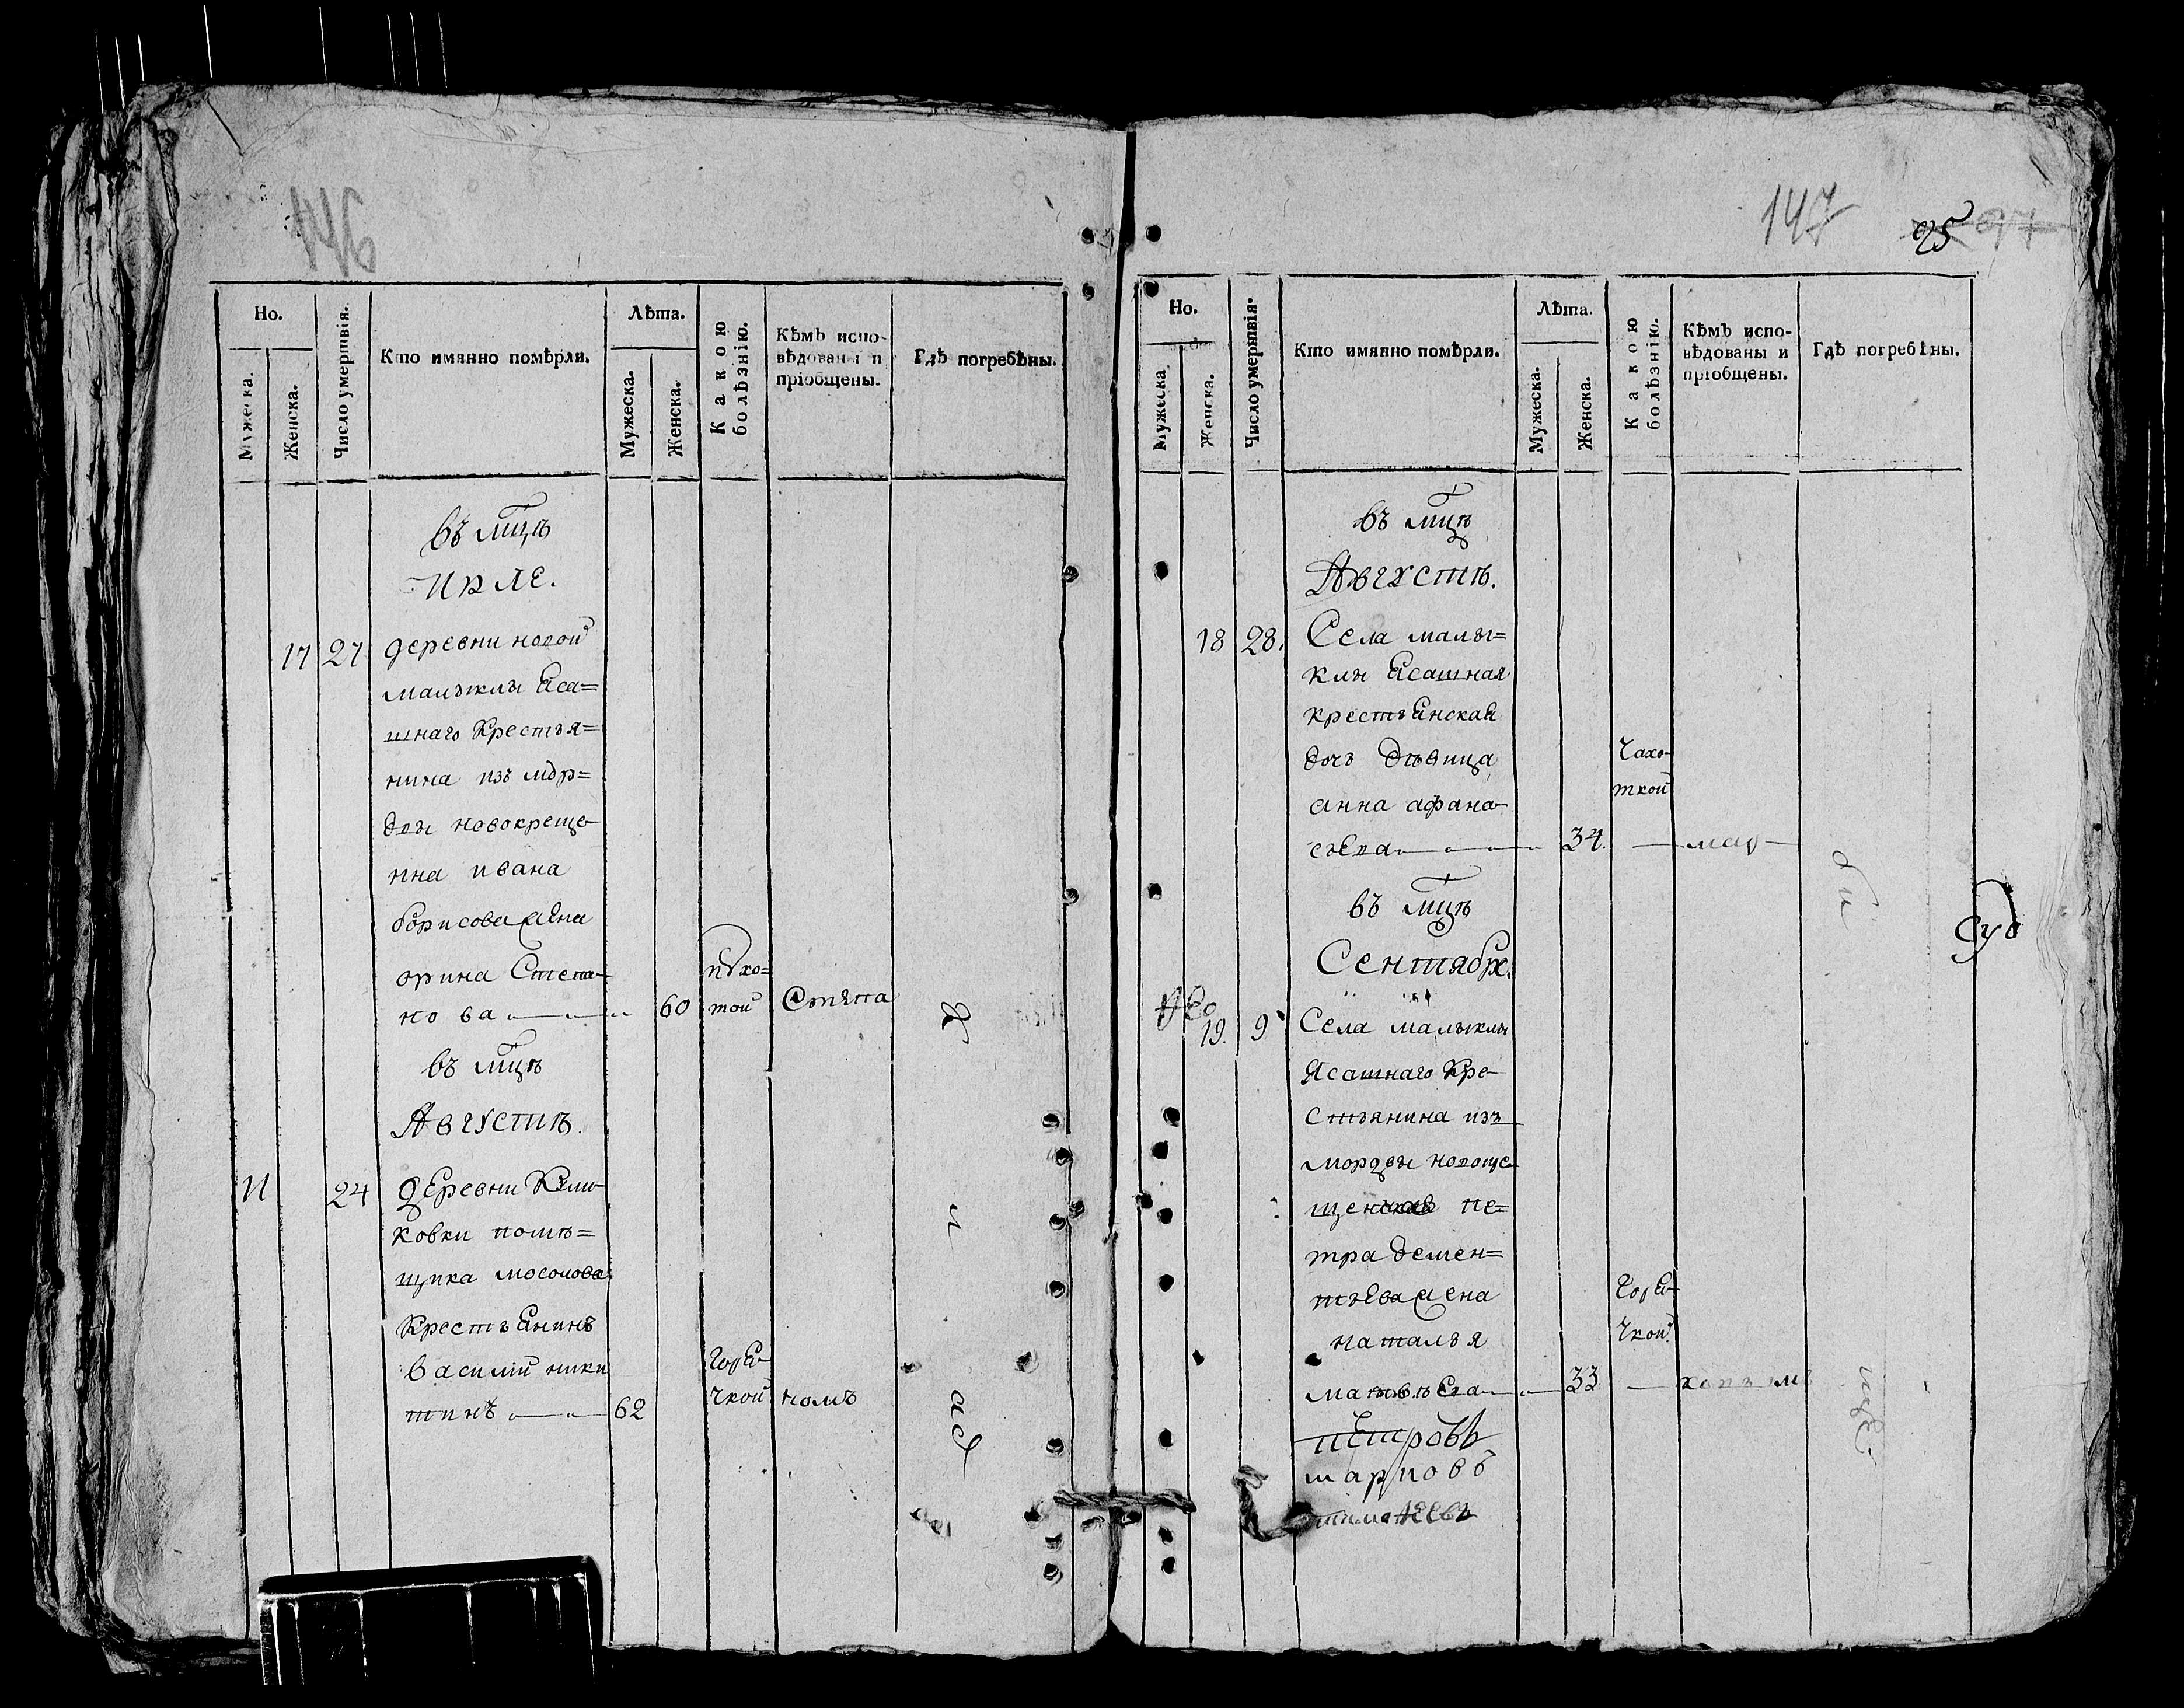 146
Но.
Мужеска.
Женска.
Число умертвія.
Кто имянно помѣрли.
Лѣта.
Мужеска.
Женска.
Какою
болѣзнію.
Кѣмъ испо-
вѣдованы и
пріобщены.
Гдѣ погребѣны.
въ мцѣ
июле.
17 27 деревни новой
малыклы Яса=
шнаго Крестья=
нина изъ мор=
двы новокреще-
нна ивана
борисова жена
орина Степа-
нова 60
въ мцѣ
Августѣ.
11 24 деревни
ковки помѣ=
щика мосолова
Крестьянинъ
василій ники
тинъ 62 горя-
чкой номъ
147
95 97
Но.
Мужеска
Женска.
Число умертвія.
Кто имянно помѣрли.
Лѣта.
Мужеска.
Женска.
Какою
болѣзнію.
Кѣмъ испо-
вѣдованы и
пріобщены.
Гдѣ погребѣны.
въ мцѣ
Августѣ.
18 28. Села малы=
клы Ясашная
крестьянская
дочь дѣвица
анна афана-
сьева 34. Чахо-
ткой мар
въ мцѣ
Сентябре.
19. 9 Села малыклы
Ясашнаго Кре-
стьянина изъ
мордвы
пе=
тра демен=
тьева жена
наталья
матвѣева 33 Горя-
чкой
петровъ